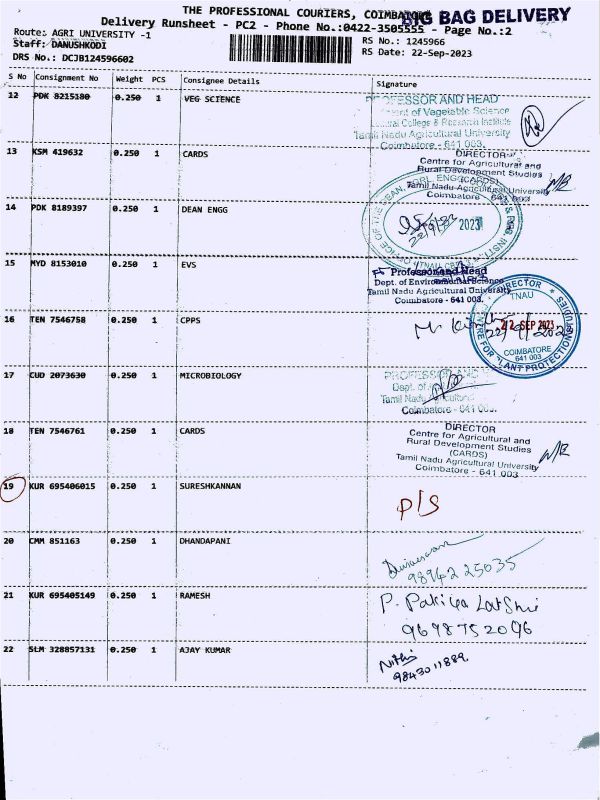 THE PROFESSIONAL COURIERS, COIMBATORE
BIG BAG DELIVERY
Delivery Runsheet - PC2 - Phone No.:0422-3505555 - Page No.:2
Route: AGRI UNIVERSITY -1
RS No.: 1245966
Staff: DANUSHKODI
RS Date: 22-Sep-2023
DRS No.: DCJB124596602
S No Consignment No Weight PCS Consignee Details Signature
12 PDK 8215180 0.250 1 VEG SCIENCE
PROFESSOR AND HEAD
of Vegetable Science
College & Research Institute
Tamil Nadu Agricultural University
Coimbatore - 641 003.
13 KSM 419632 0.250 1 CARDS
DIRECTOR
Centre for Agricultural and
Rural Development Studies
(CARDS)
Tamil Nadu Agricultural University
Coimbatore - 641 003
14 PDK 8189397 0.250 1 DEAN ENGG
OFFICE OF THE DEAN,
2023
15 MYD 8153010 0.250 1 EVS
Professor and Head
Dept. of Environmental Science
Tamil Nadu Agricultural University
Coimbatore - 641 003.
16 TEN 7546758 0.250 1 CPPS
DIRECTOR
TNAU
22 SEP 2023
COIMBATORE
641 003
CENTRE FOR PLANT PROTECTION STUDIES
17 CUD 2073630 0.250 1 MICROBIOLOGY
PROFESSOR AND
Dept. of
Tamil Nadu
Coimbatore - 641 003.
18 TEN 7546761 0.250 1 CARDS
DIRECTOR
Centre for Agricultural and
Rural Development Studies
(CARDS)
Tamil Nadu Agricultural University
Coimbatore - 641 003
19 KUR 695406015 0.250 1 SURESHKANNAN
P/S
20 CMM 851163 0.250 1 DHANDAPANI
98942 25035
21 KUR 695405149 0.250 1 RAMESH
P. Pakiya Latshmi
9698752096
22 SLM 328857131 0.250 1 AJAY KUMAR
Nithi
9843011889